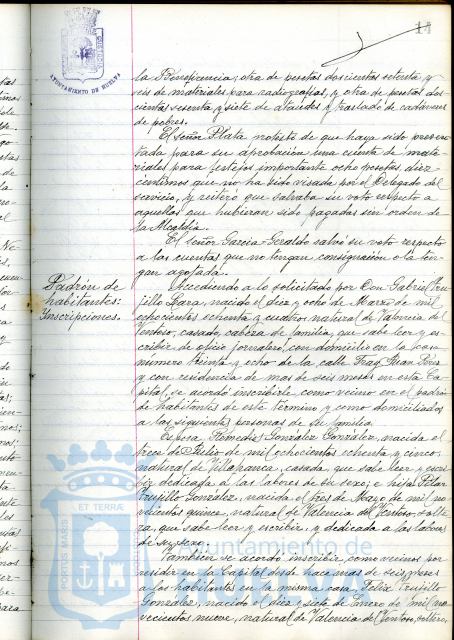 14
AYUNTAMIENTO DE HUELVA
la Beneficencia; otra de pesetas doscientas setenta y
seis de materiales para radiografías, y otra de pesetas dos-
cientas sesenta y siete de ataudes y traslado de cadáveres
de pobres.
El señor Plata protestó de que haya sido presen-
tada para su aprobación una cuenta de mate-
riales para festejos importante ocho pesetas, diez
céntimos que no ha sido visada por el Delegado del
servicio, y reiteró que salvaba su voto respecto a
aquellas que hubieran sido pagadas sin orden de
la Alcaldía.
El señor García Geraldo salvó su voto respecto
a las cuentas que no tengan consignación o la ten-
gan agotada.
Padrón de
habitantes:
Inscripciones.
Accediendo a lo solicitado por Don Gabriel Tru-
jillo Lara, nacido el diez y ocho de Marzo de mil
ochocientos ochenta y cuatro, natural de Valencia del
Ventoso, casado, cabeza de familia, que sabe leer y es-
cribir, de oficio jornalero, con domicilio en la casa
número treinta y ocho de la calle Fray Juan Pérez
y con residencia de mas de seis meses en esta Ca-
pital, se acordó inscribirle como vecino en el padrón
de habitantes de este término y como domiciliados
a las siguientes personas de su familia.
Esposa, Remedios González González, nacida el
trece de Julio de mil ochocientos ochenta y cinco,
natural de Villafranca, casada, que sabe leer y escri-
bir, dedicada a las labores de su sexo; e hija Pilar
Trujillo González, nacida el tres de Mayo de mil no-
vecientos quince, natural de Valencia del Ventoso, solte-
ra, que sabe leer y escribir, y dedicada a las labores
de su sexo.
También se acordó inscribir como vecinos por
residir en la Capital desde hace mas de seis meses
a los habitantes en la misma casa, Félix Trujillo
González, nacido el diez y siete de Enero de mil no-
vecientos nueve, natural de Valencia del Ventoso, soltero,
PORTUS MARIS ET TERRÆ
Ayuntamiento de